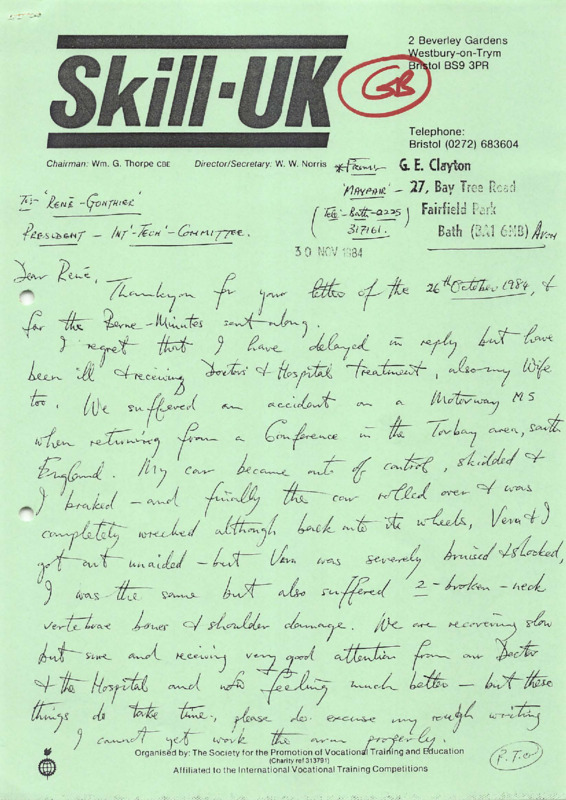 Skill·UK
GB
2 Beverley Gardens
Westbury-on-Trym
Bristol BS9 3PR
Telephone:
Bristol (0272) 683604
Chairman: Wm. G. Thorpe CBE Director/Secretary: W. W. Norris
* From:- G. E. Clayton
'MAYFAIR' - 27, Bay Tree Road
(Tele:- Bath-0225) Fairfield Park
317161. Bath (BA1 6NB) Avon
To:- 'RENÉ - GONTHIER'
PRESIDENT - INT'-TECH'-COMMITTEE.
30 NOV 1984
Dear René,
Thankyou for your letter of the 26th October 1984, &
for the Berne-Minutes sent along.
I regret that I have delayed in reply but have
been ill & receiving Doctors & Hospital Treatment, also my Wife
too. We suffered an accident on a Motorway M5
when returning from a Conference in the Torbay area, south
England. My car became out of control, skidded &
I braked - and finally the car rolled over & was
completely wrecked although back onto its wheels, Vera & I
got out unaided - but Vera was severely bruised & shocked,
I was the same but also suffered 2 - broken - neck
vertebrae bones & shoulder damage. We are recovering slow
but sure and receiving very good attention from our Doctor
& the Hospital and now feeling much better - but these
things do take time, please do excuse my rough writing
I cannot yet work the arm properly.
Organised by: The Society for the Promotion of Vocational Training and Education
(Charity ref 313791)
Affiliated to the International Vocational Training Competitions
(P.T.O)